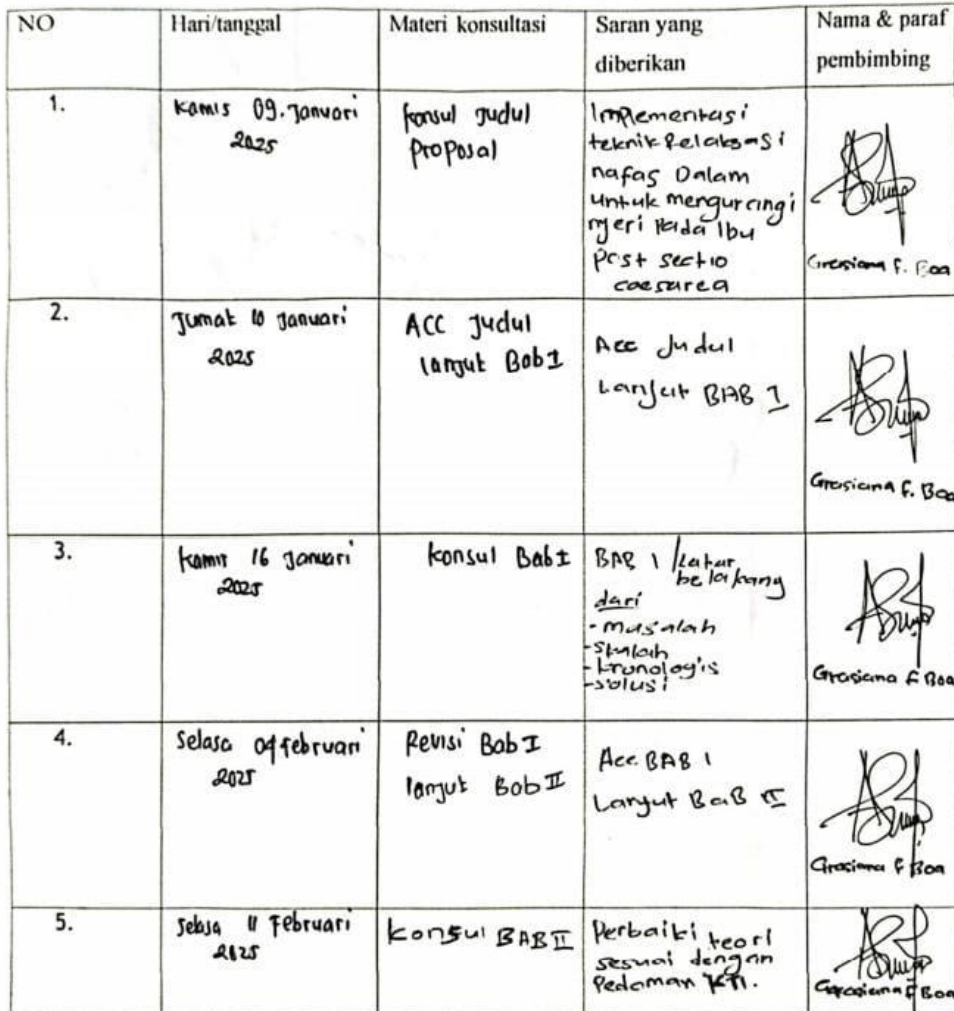 NO Hari/tanggal Materi konsultasi Saran yang diberikan Nama & paraf pembimbing
1. Kamis 09. Januari 2025
konsul Judul
Proposal
Implementasi
teknik Relaksasi
nafas Dalam
untuk mengurangi
nyeri Pada Ibu
Post sectio
caesarea
Grasiana F. Boa
2. Jumat 10 Januari 2025
ACC Judul
lanjut Bab I
Acc Judul
Lanjut BAB I
Grasiana F. Boa
3. Kamis 16 Januari 2025
konsul Bab I
BAB 1 / Latar
belakang
dari
- masalah
- skalah
- kronologis
- solusi
Grasiana F Boa
4. Selasa 04 februari 2025
Revisi Bab I
lanjut Bab II
Acc BAB 1
Lanjut BaB II
Grasiana F Boa
5. Selasa 11 Februari 2025
Konsul BAB II
Perbaiki teori
sesuai dengan
Pedoman KTI.
Grasiana F Boa